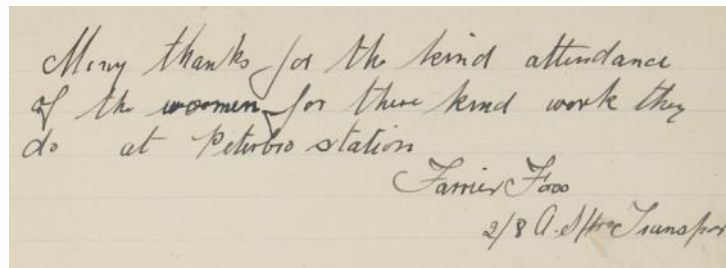 Many thanks for the kind attendance
of the woomen for there kind work they
do at Peterbro station
Farrier Foss
2/8 A. Transpor